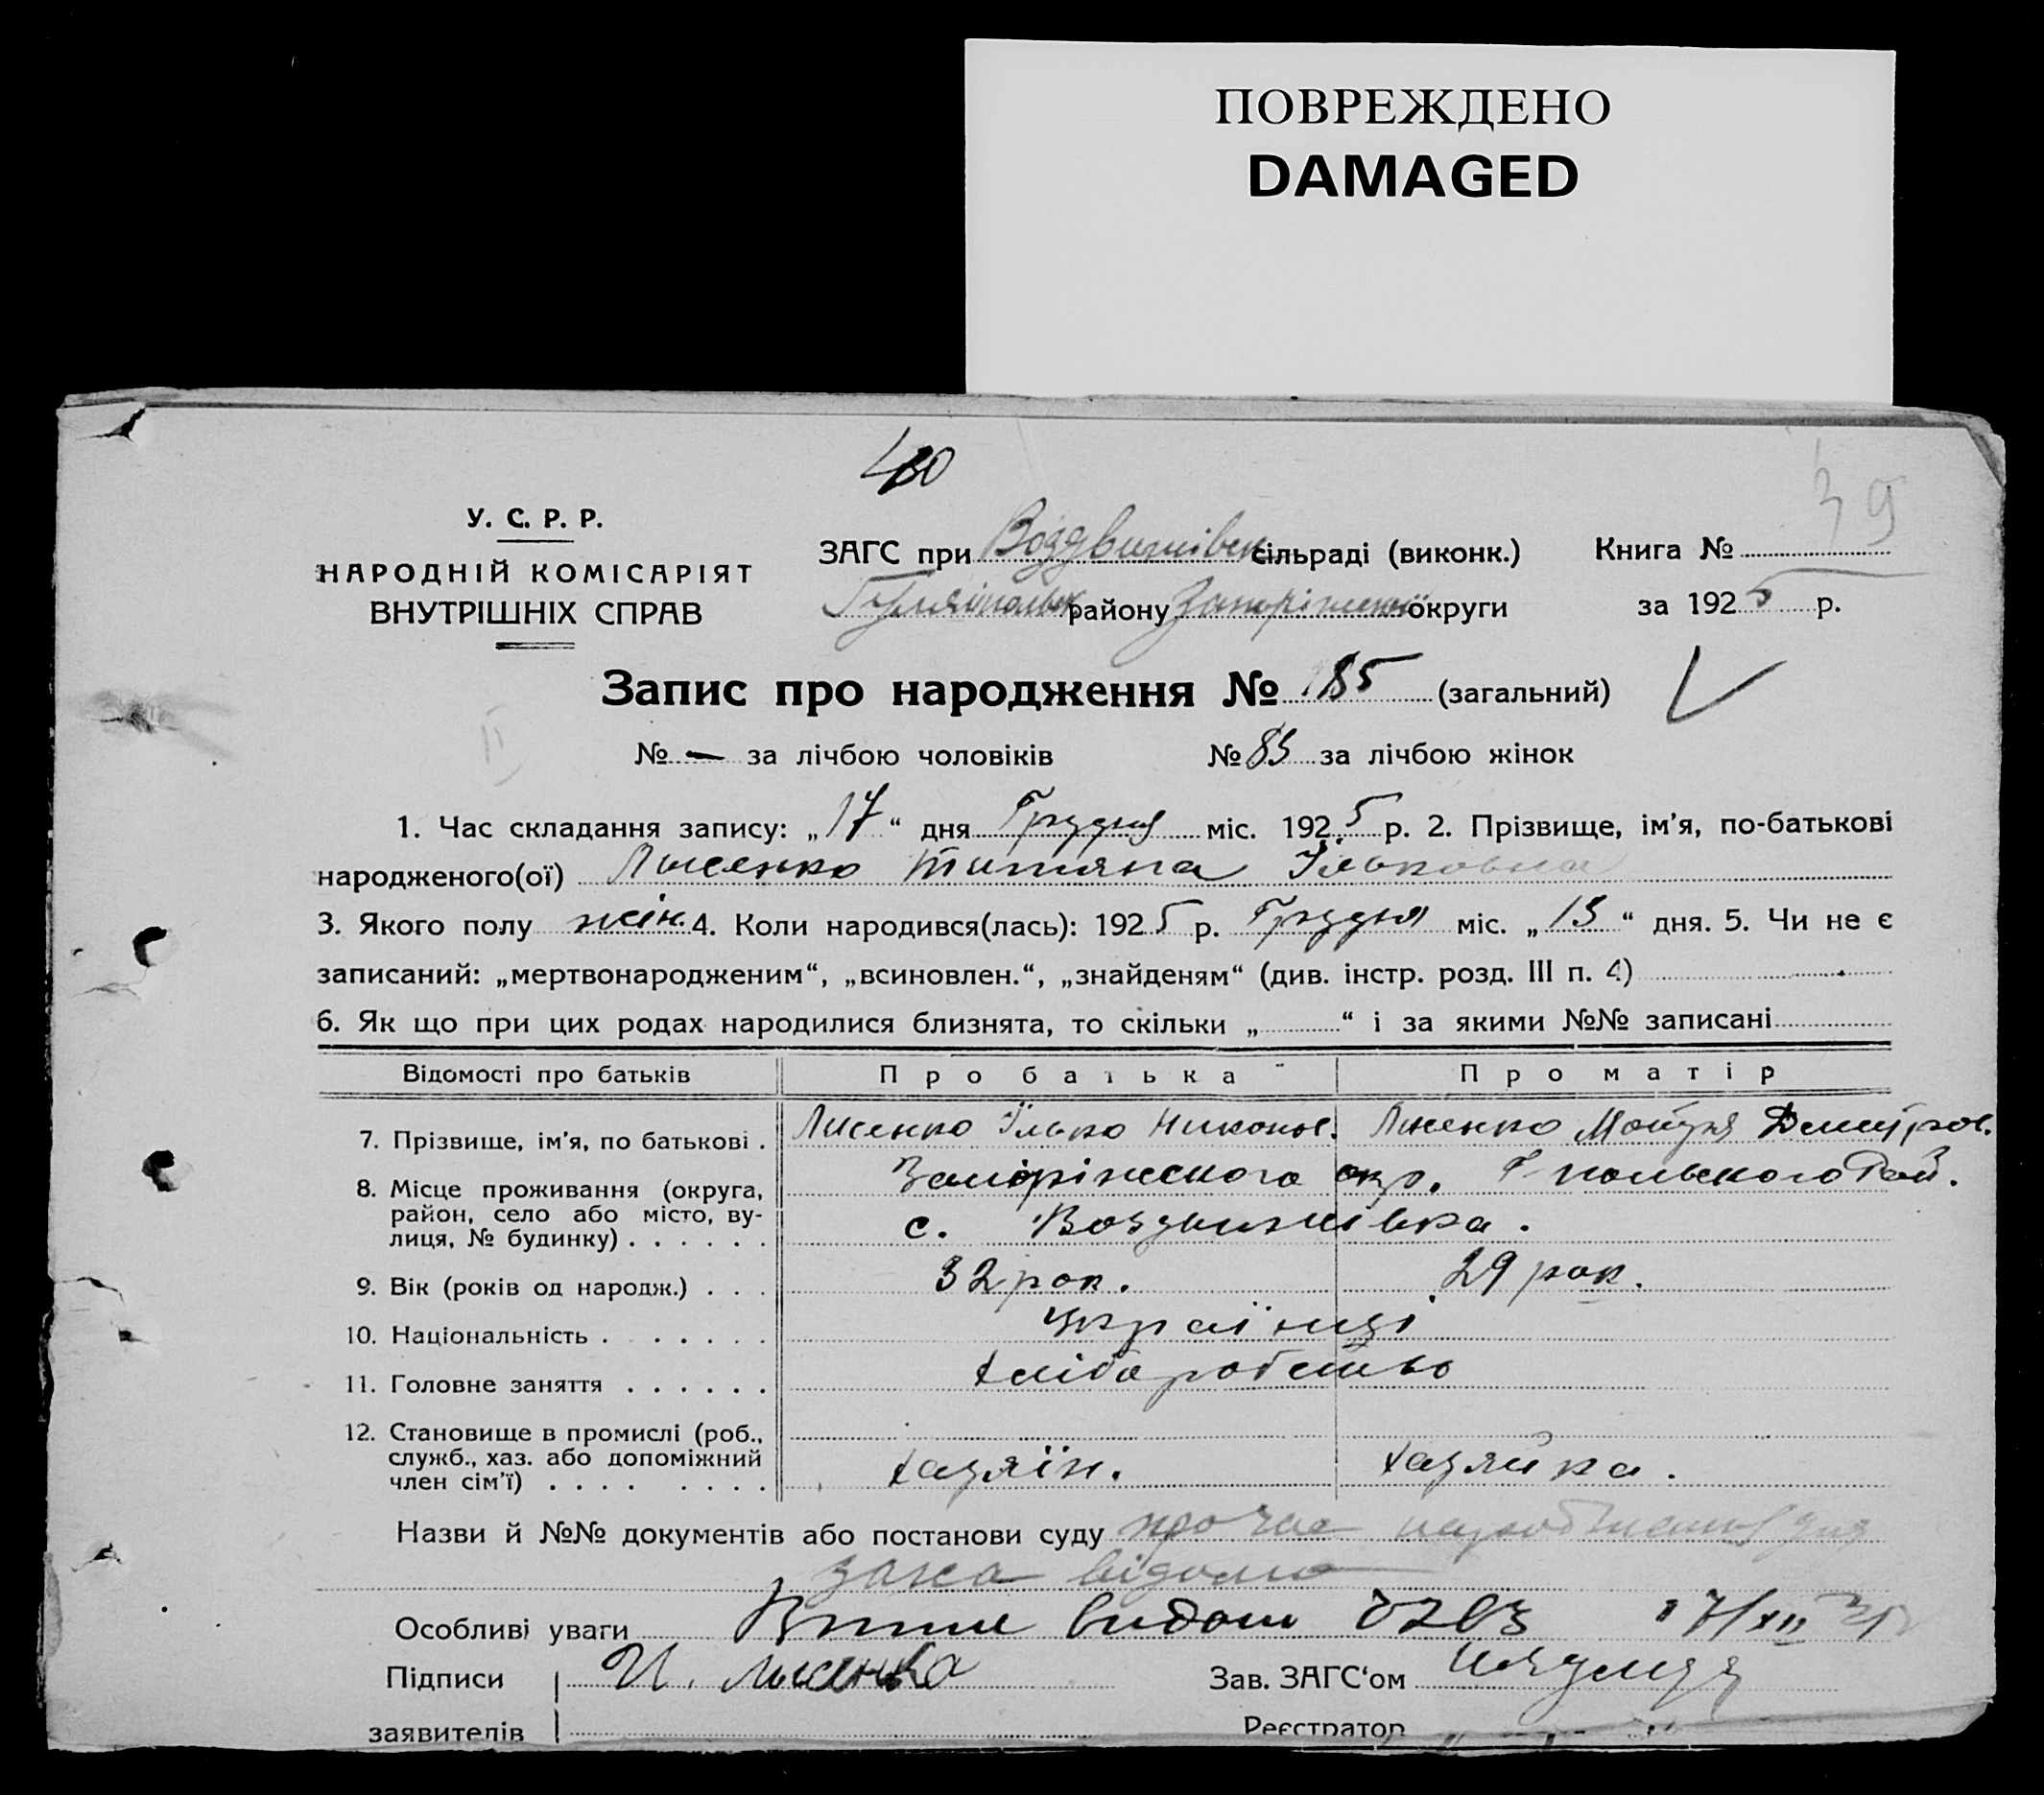 ПОВРЕЖДЕНО
DAMAGED
39
У. С. Р. Р.
НАРОДНІЙ КОМІСАРІЯТ
ВНУТРІШНІХ СПРАВ
ЗАГС при Воздвижівск сільраді (виконк.) Книга №
Гуляйпольськ району Запоріжської округи за 1925 р.
Запис про народження № 185 (загальний)
№ — за лічбою чоловіків № 85 за лічбою жінок
1. Час складання запису: „17“ дня Грудня міс. 1925 р. 2. Прізвище, ім’я, по-батькові
народженого(ої) Лисенко Титяна Ільковна
3. Якого полу жін. 4. Коли народився(лась): 1925 р. Грудня міс. „13“ дня. 5. Чи не є
записаний: „мертвонародженим“, „всиновлен.“, „знайденям“ (див. інстр. розд. III п. 4)
6. Як що при цих родах народилися близнята, то скільки „ “ і за якими №№ записані
Відомості про батьків Про батька Про матір
7. Прізвище, ім’я, по батькові . Лисенко Ілько Никонов. Лисенко Мотря Дмитров.
8. Місце проживання (округа, район, село або місто, ву-лиця, № будинку) . . . . . . Запоріжского окр. Г-польского Рай.
с. Воздвижівка.
9. Вік (років од народж.) . . . 32 рок. 29 рок.
10. Національність . . . . . . українці
11. Головне заняття . . . . . . хліборобство
12. Становище в промислі (роб.,
служб., хаз. або допоміжний
член сім’ї) . . . . . . . . хазяїн. хазяйка.
Назви й №№ документів або постанови суду про час
заява відома
Особливі уваги видан 17/XII
Підписи И. Лисенко Зав. ЗАГС‘ом
заявителів Реєстратор